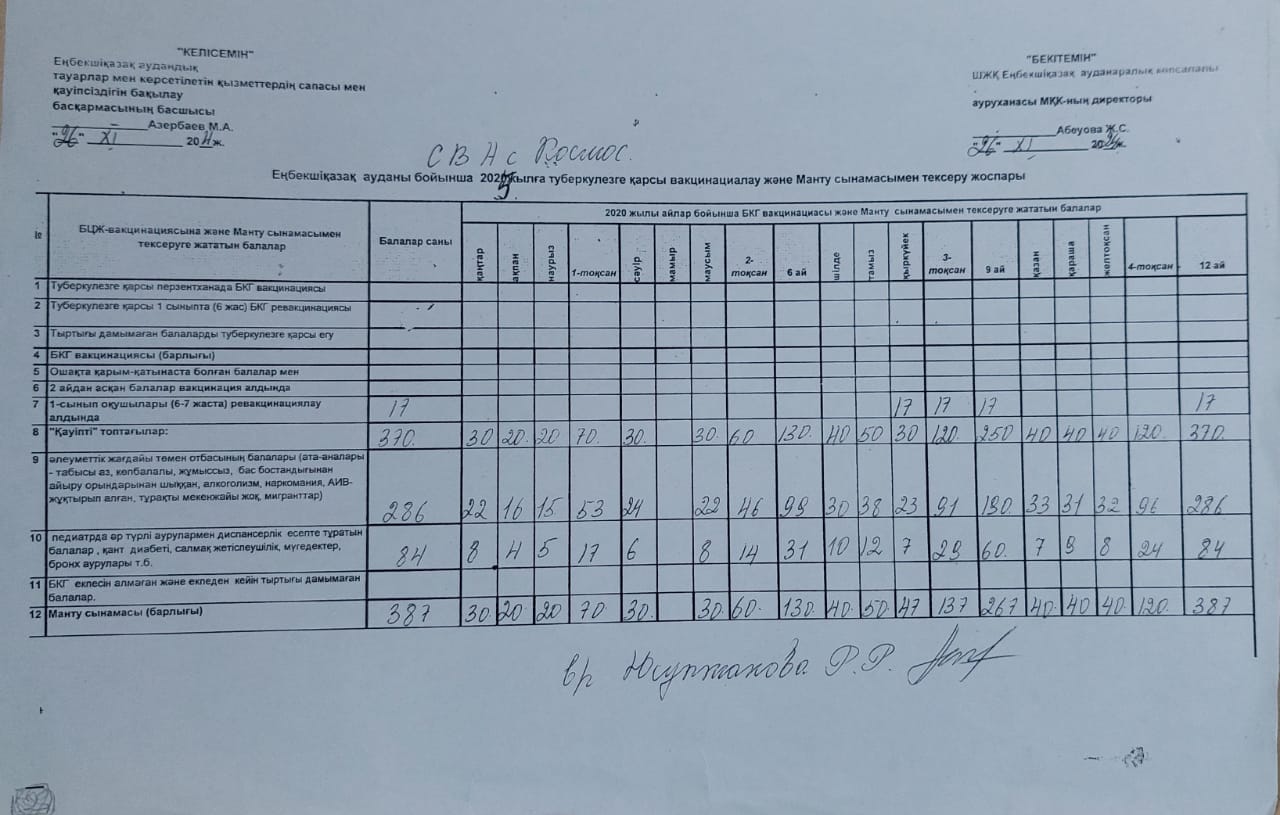 "КЕЛІСЕМІН"
Еңбекшіқазақ аудандық
тауарлар мен көрсетілетін қызметтердің сапасы мен
қауіпсіздігін бақылау
басқармасының басшысы
Азербаев М.А.
"26" XI 20 ж.
"БЕКІТЕМІН"
ШЖҚ Еңбекшіқазақ ауданаралық көпсалалы
ауруханасы МКК-ның директоры
Абеуова Ж.С.
"26" XI 2024ж.
СВА с Космос.
Еңбекшіқазақ ауданы бойынша 2025 жылға туберкулезге қарсы вакцинациалау және Манту сынамасымен тексеру жоспары
№ БЦЖ-вакцинациясына және Манту сынамасымен тексеруге жататын балалар Балалар саны 2020 жылы айлар бойынша БКГ вакцинациясы және Манту сынамасымен тексеруге жататын балалар
қаңтар ақпан наурыз 1-тоқсан сәуір мамыр маусым 2-тоқсан 6 ай шілде тамыз қыркүйек 3-тоқсан 9 ай қазан қараша желтоқсан 4-тоқсан 12 ай
1 Туберкулезге қарсы перзентханада БКГ вакцинациясы
2 Туберкулезге қарсы 1 сыныпта (6 жас) БКГ ревакцинациясы
3 Тыртығы дамымаған балаларды туберкулезге қарсы егу
4 БКГ вакцинациясы (барлығы)
5 Ошақта қарым-қатынаста болған балалар мен
6 2 айдан асқан балалар вакцинация алдында
7 1-сынып оқушылары (6-7 жаста) ревакцинациялау
алдында 17 17 17 17 17
8 "Қауіпті" топтағылар: 370. 30 20. 20 70. 30. 30. 60 130. 40 50 30 120. 250 40 40 40 120. 370.
9 әлеуметтік жағдайы төмен отбасының балалары (ата-аналары
- табысы аз, көпбалалы, жұмыссыз, бас бостандығынан
айыру орындарынан шыққан, алкоголизм, наркомания, АИВ-
жұқтырып алған, тұрақты мекенжайы жоқ, мигранттар)
286 22 16 15 53 24 22 46 99 30 38 23 91 190. 33 31 32 96 286
10 педиатрда әр түрлі аурулармен диспансерлік есепте тұратын
балалар , қант диабеті, салмақ жетіспеушілік, мүгедектер,
бронх аурулары т.б. 84 8 4 5 17 6 8 14 31 10 12 7 29 60. 7 9 8 24 84
11 БКГ екпесін алмаған және екпеден кейін тыртығы дамымаған
балалар.
12 Манту сынамасы (барлығы) 387 30. 20 20 70 30. 30. 60. 130. 40. 50. 47 137 267 40. 40 40. 120. 387
вр Юсупжанова Р.Р.